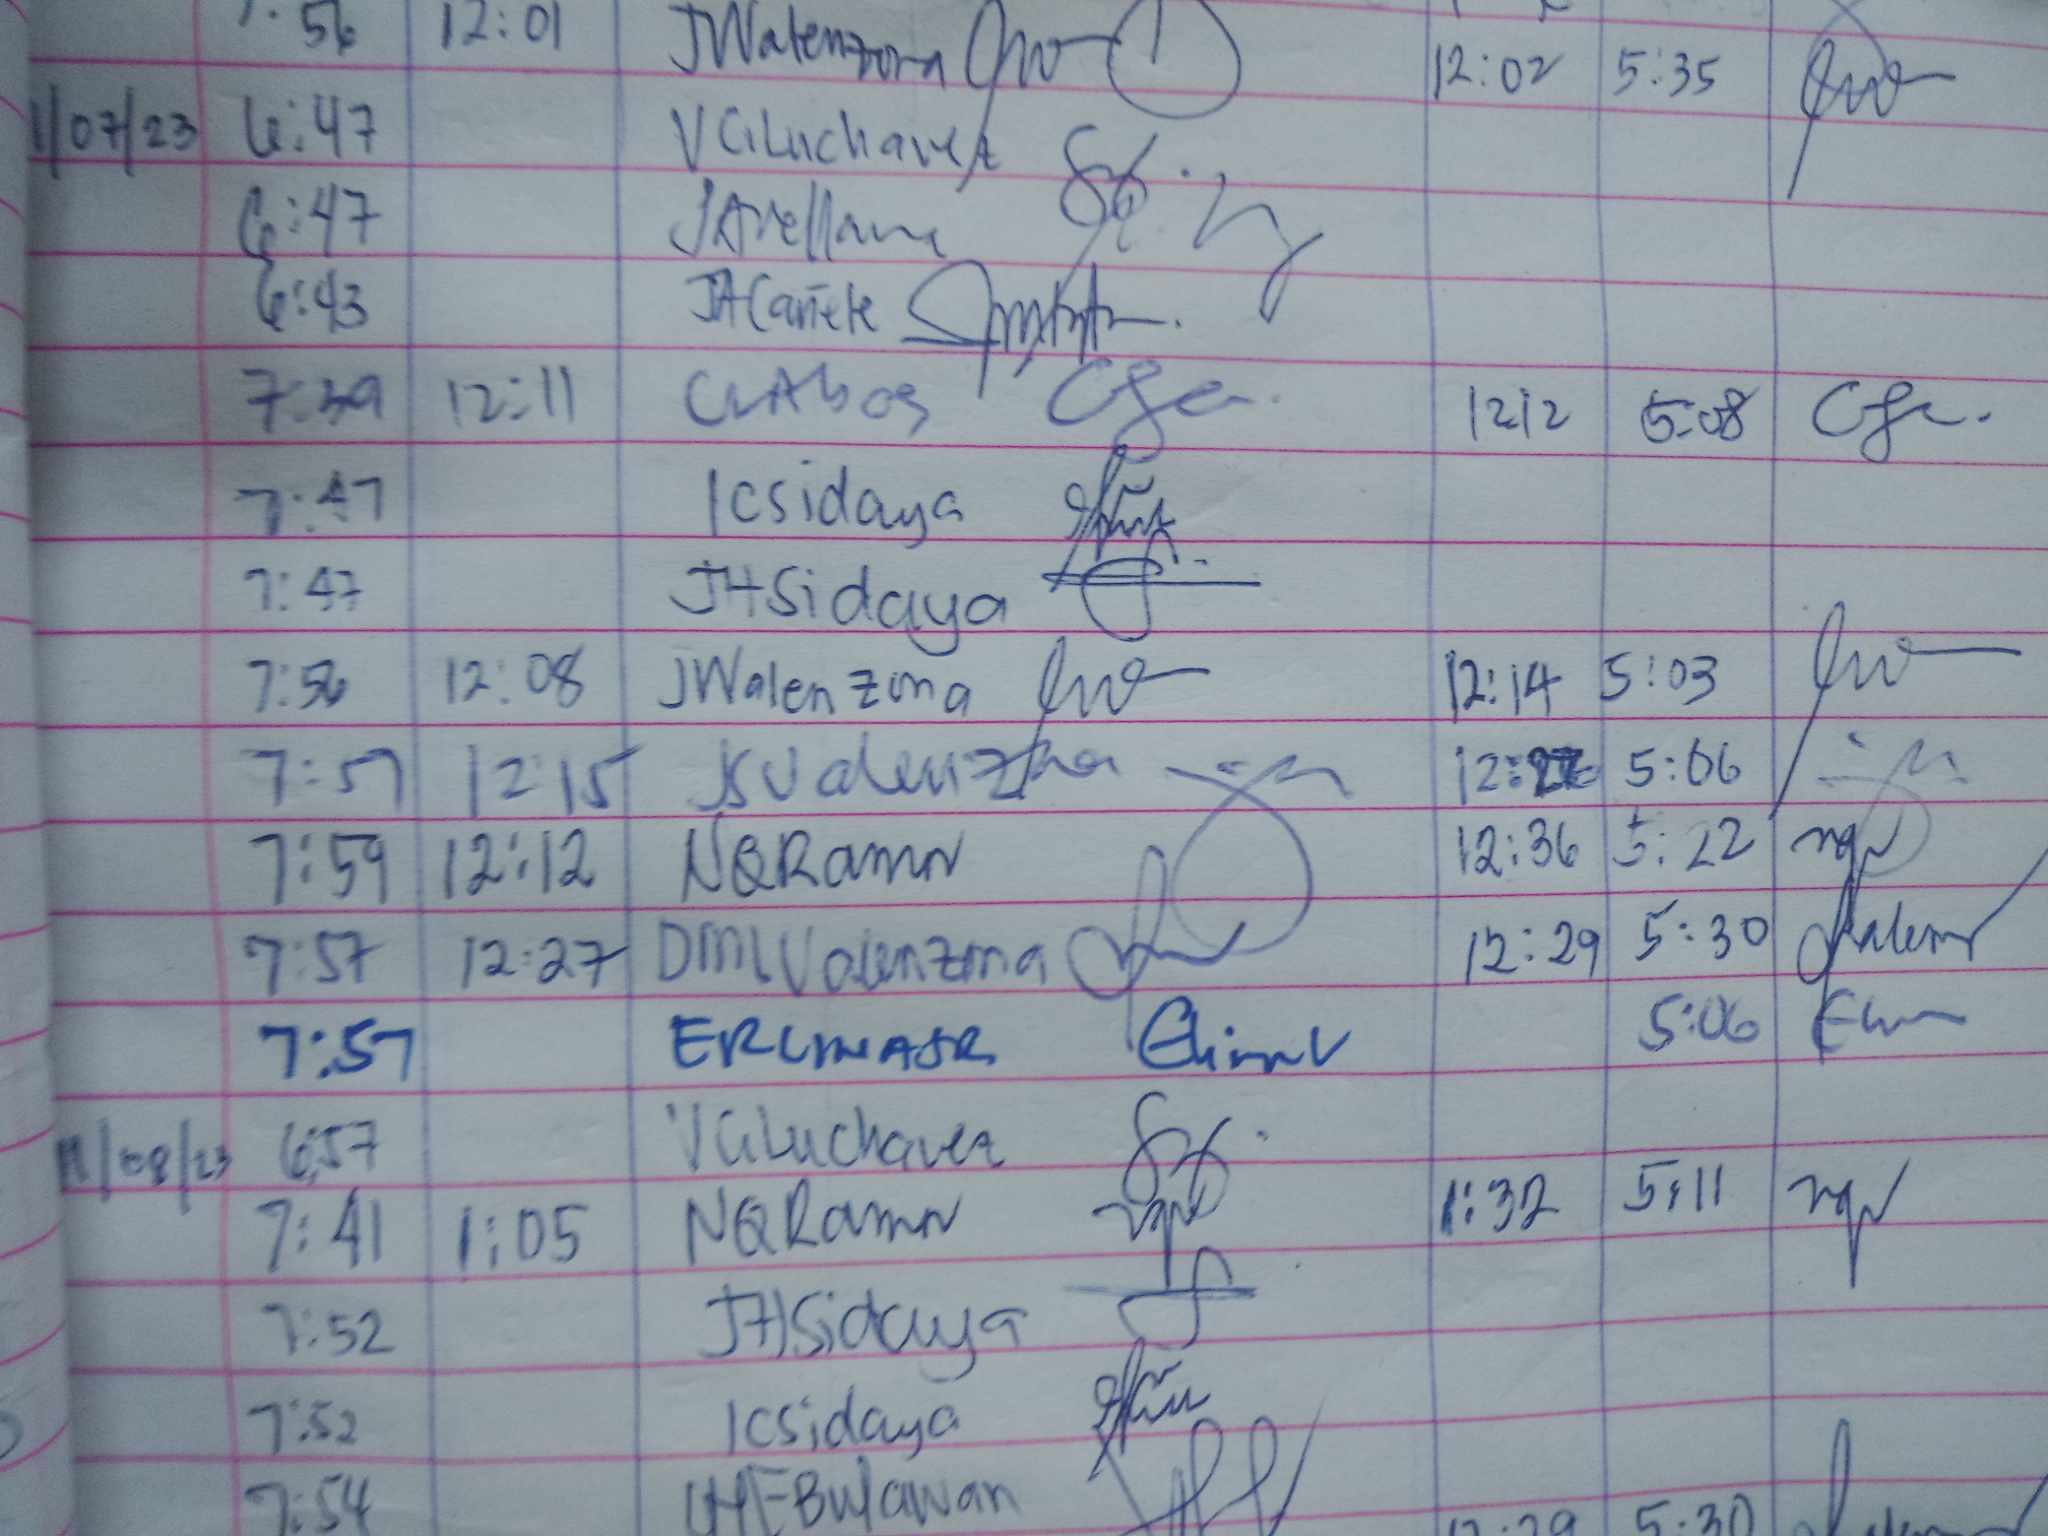 56 12:01 JWalenzona 12:02 5:35
1/07/23 6:47 VGLuchavez
6:47 JArellano
6:43 JACañete
7:39 12:11 CRAbos 1212 5:08
7:47 ICSidaya
7:47 JHSidaya
7:56 12:08 JWalenzona 12:14 5:03
7:57 12:15 JSValenzona 5:06
7:59 12:12 NQRamn 12:36 5:22
7:57 12:27 DMLValenzona 12:29 5:30
7:57 5:06
11/08/23 6:57 VGLuchavez
7:41 1:05 NQRamn 1:32 5:11
7:52 JHSidaya
7:52 ICSidaya
7:54 Bulawan 12:29 5:30